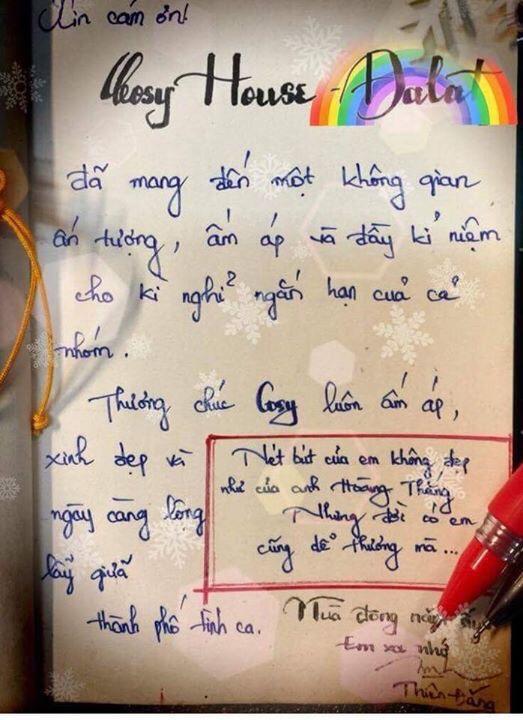 Xin cám ơn!
Cosy House - Dalat
đã mang đến một không gian
ấn tượng, ấm áp và đầy kỉ niệm
cho kì nghỉ ngắn hạn cuả cả
nhóm.
Thương chúc Cosy luôn ấm áp,
xinh đẹp và
ngày càng lộng
lẫy giữa
thành phố tình ca.
Nét bút của em không đẹp
như của anh Hoàng Thắng
Nhưng đời có em
cũng dễ thương mà...
Mùa đông năm ấy
Em xa nhớ
Thiên Đăng